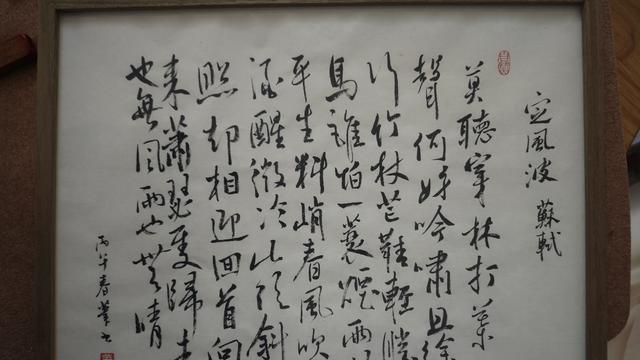 定風波 蘇軾
莫聽穿林打葉
聲何妨吟嘯且徐
行竹杖芒鞋輕勝
馬誰怕一蓑煙雨
平生料峭春風吹
酒醒微冷山頭斜
照却相迎回首向
來蕭瑟處歸去
也無風雨也无晴
丙午春書